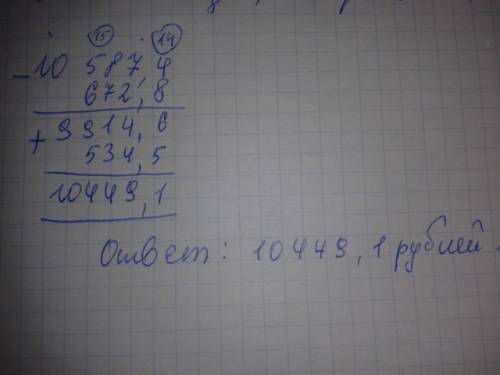 15 14
- 10 587,4
672,8
+ 9914,6
534,5
10449,1
Ответ: 10449,1 рублей.